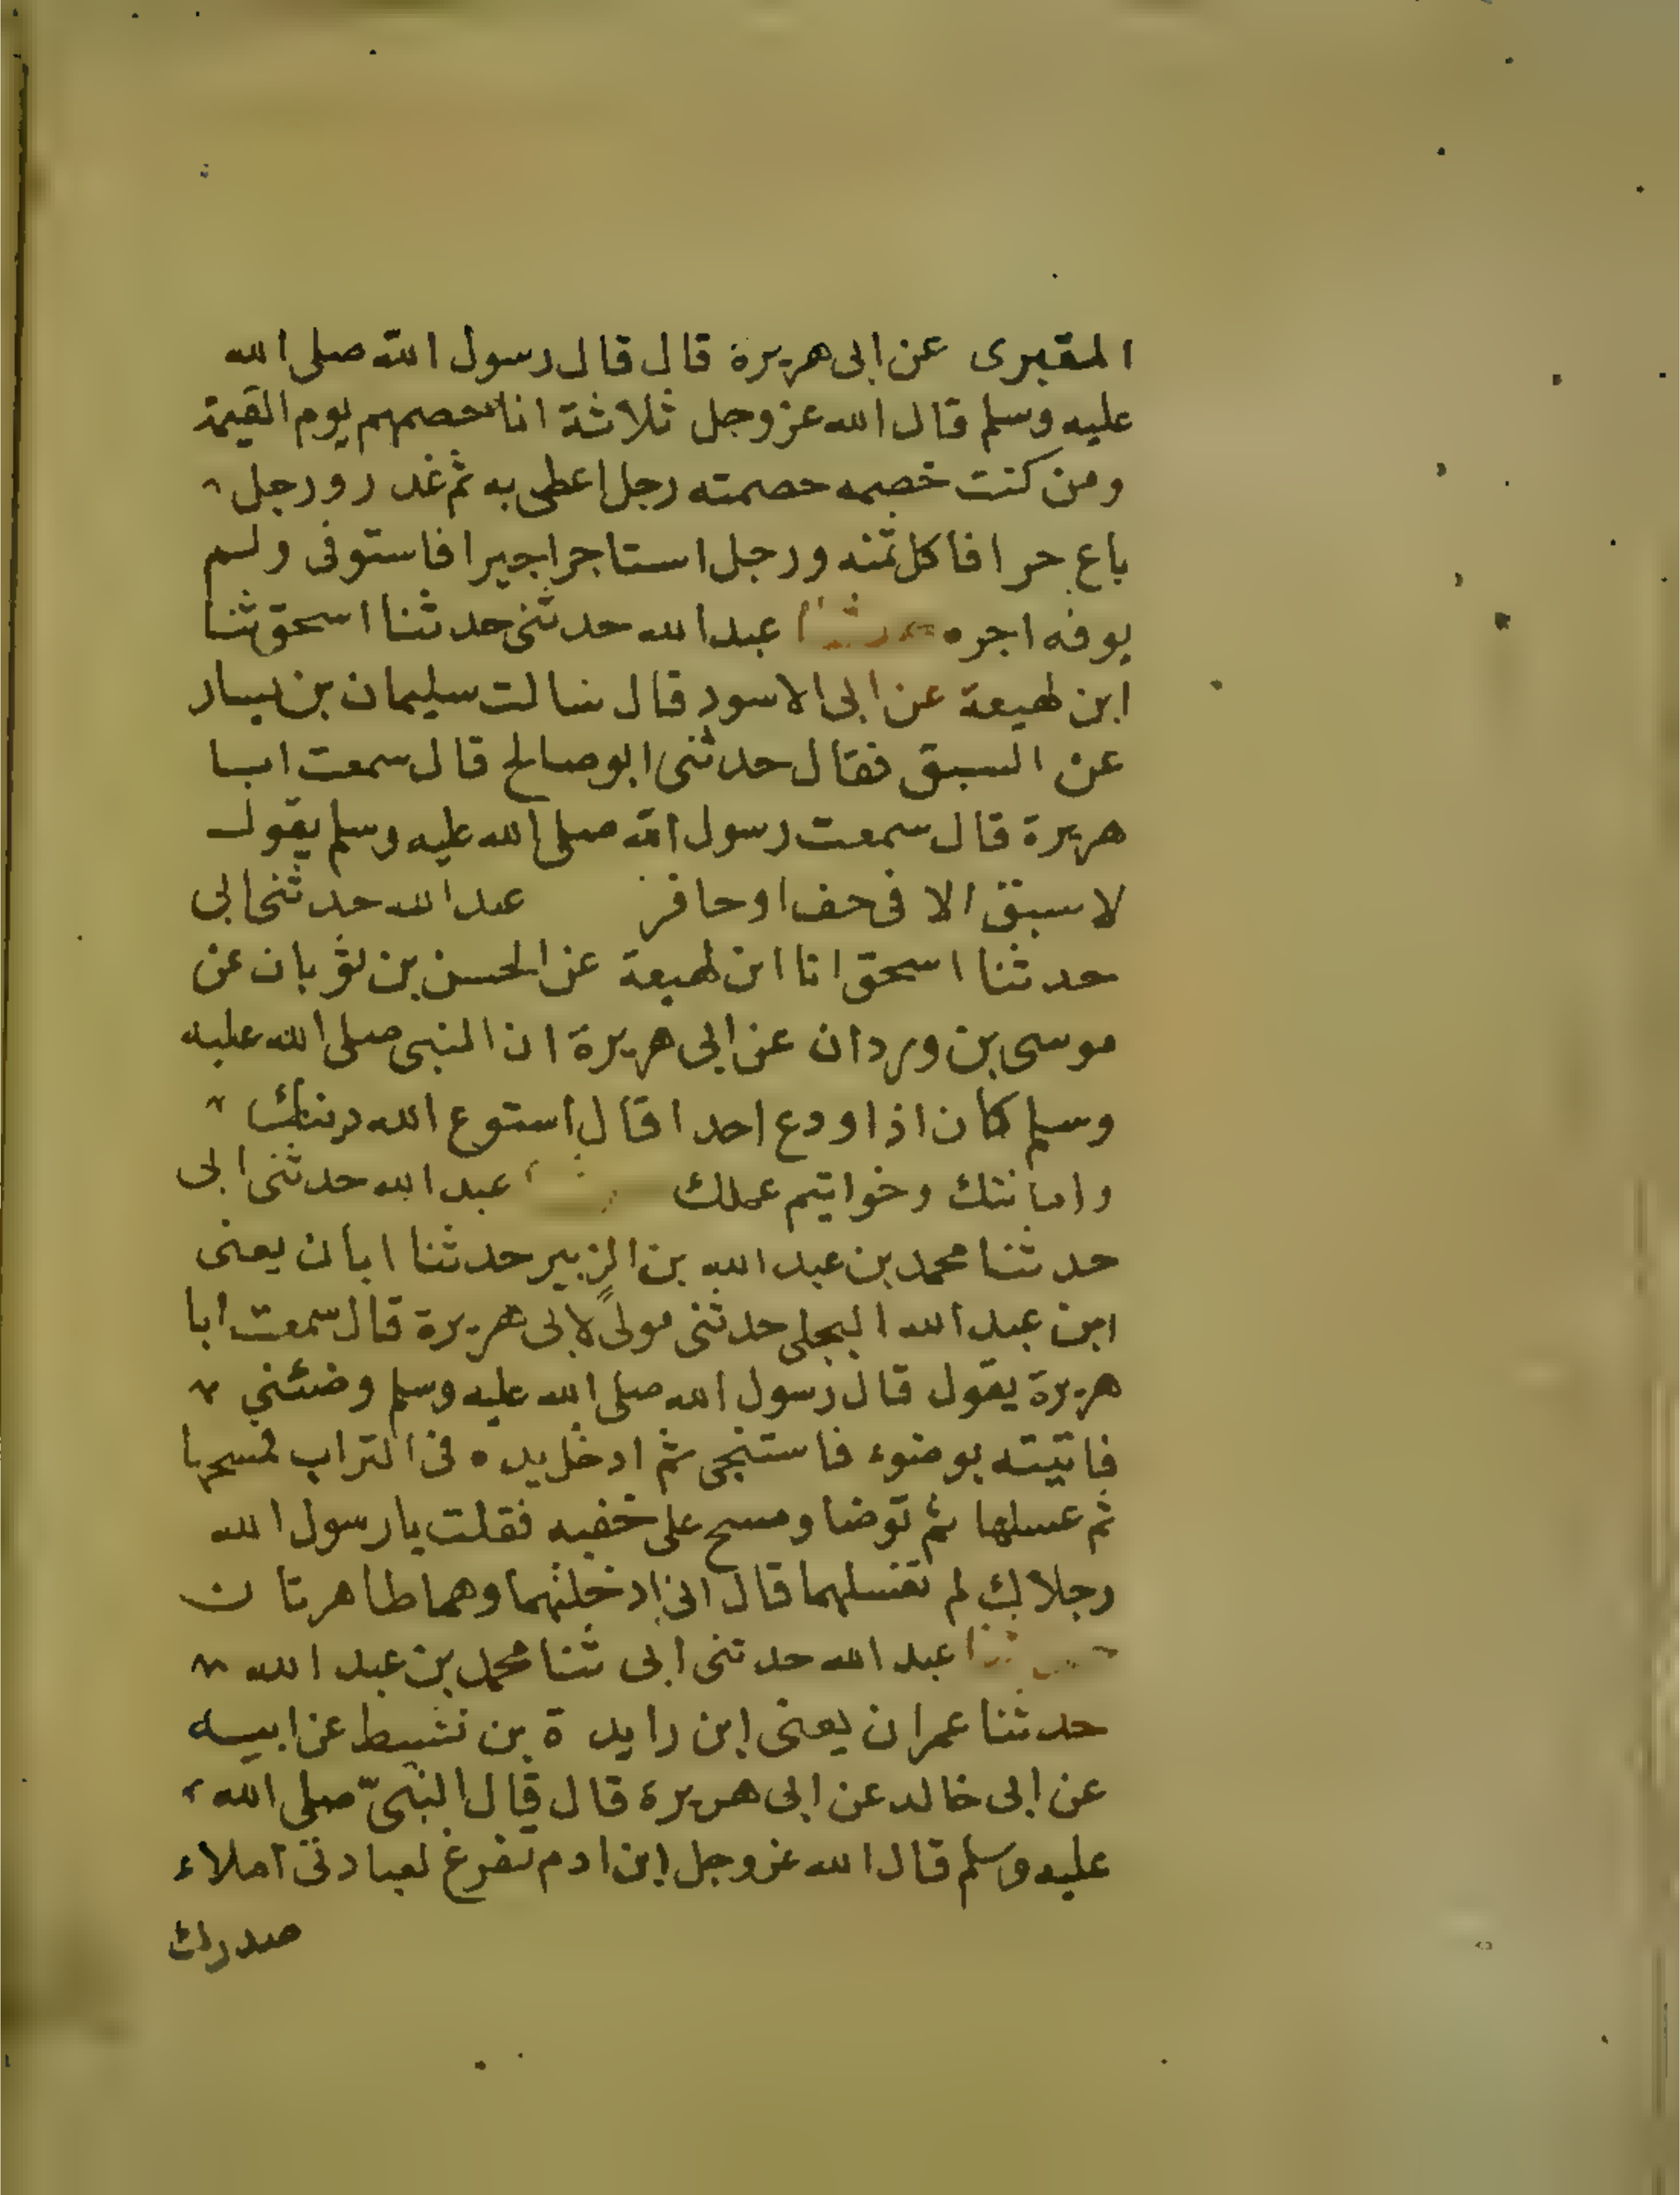 المقبرى عن ابى هريرة قال قال رسول الله صلى الله
عليه وسلم قال الله عز وجل ثلاثة انا خصمهم يوم القيمة
ومن كنت خصمه خصمته رجل اعطى به ثم غدر ورجل
باع حرا فاكل ثمنه ورجل استاجر اجيرا فاستوفى ولم
يوفه اجره حدثنا عبد الله حدثنى حدثنا اسحق ثنا
ابن لهيعة عن ابى الاسود قال سالت سليمان بن يسار
عن السبق فقال حدثنى ابو صالح قال سمعت ابا
هريرة قال سمعت رسول الله صلى الله عليه وسلم يقول
لا سبق الا فى خف او حافر عبد الله حدثنى ابى
حدثنا اسحق انا ابن لهيعة عن الحسن بن ثوبان عن
موسى بن وردان عن ابى هريرة ان النبى صلى الله عليه
وسلم كان اذا ودع احدا قال استوع الله دينك
وامانتك وخواتيم عملك عبد الله حدثنى ابى
حدثنا محمد بن عبد الله بن الزبير حدثنا ابان يعنى
ابن عبد الله البجلى حدثنى مولىً لابى هريرة قال سمعت ابا
هريرة يقول قال رسول الله صلى الله عليه وسلم وضئني
فاتيته بوضوء فاستنجى ثم ادخل يده فى التراب فمسحها
ثم غسلها ثم توضا ومسح على خفيه فقلت يا رسول الله
رجلاك لم تغسلهما قال انى ادخلتهما وهما طاهرتان
حدثنا عبد الله حدثنى ابى ثنا محمد بن عبد الله
حدثنا عمران يعنى ابن زايدة بن نشيط عن ابيه
عن ابى خالد عن ابى هريرة قال قال النبىّ صلى الله
عليه وسلم قال الله عز وجل ابن ادم تفرغ لعبادتى املاء
صدرك